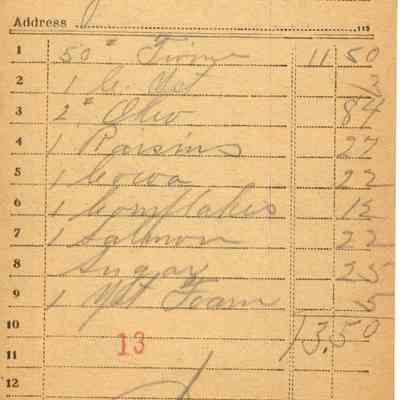 Address 115
1 50# 11 50
2 1 C. Yst 3
3 2# Oleo 84
4 1 Raisins 27
5 1 Cocoa 22
6 1 Cornflakes 12
7 1 Salmon 22
8 Sugar 25
9 1 Yst Foam 5
10 13.50
11 13
12